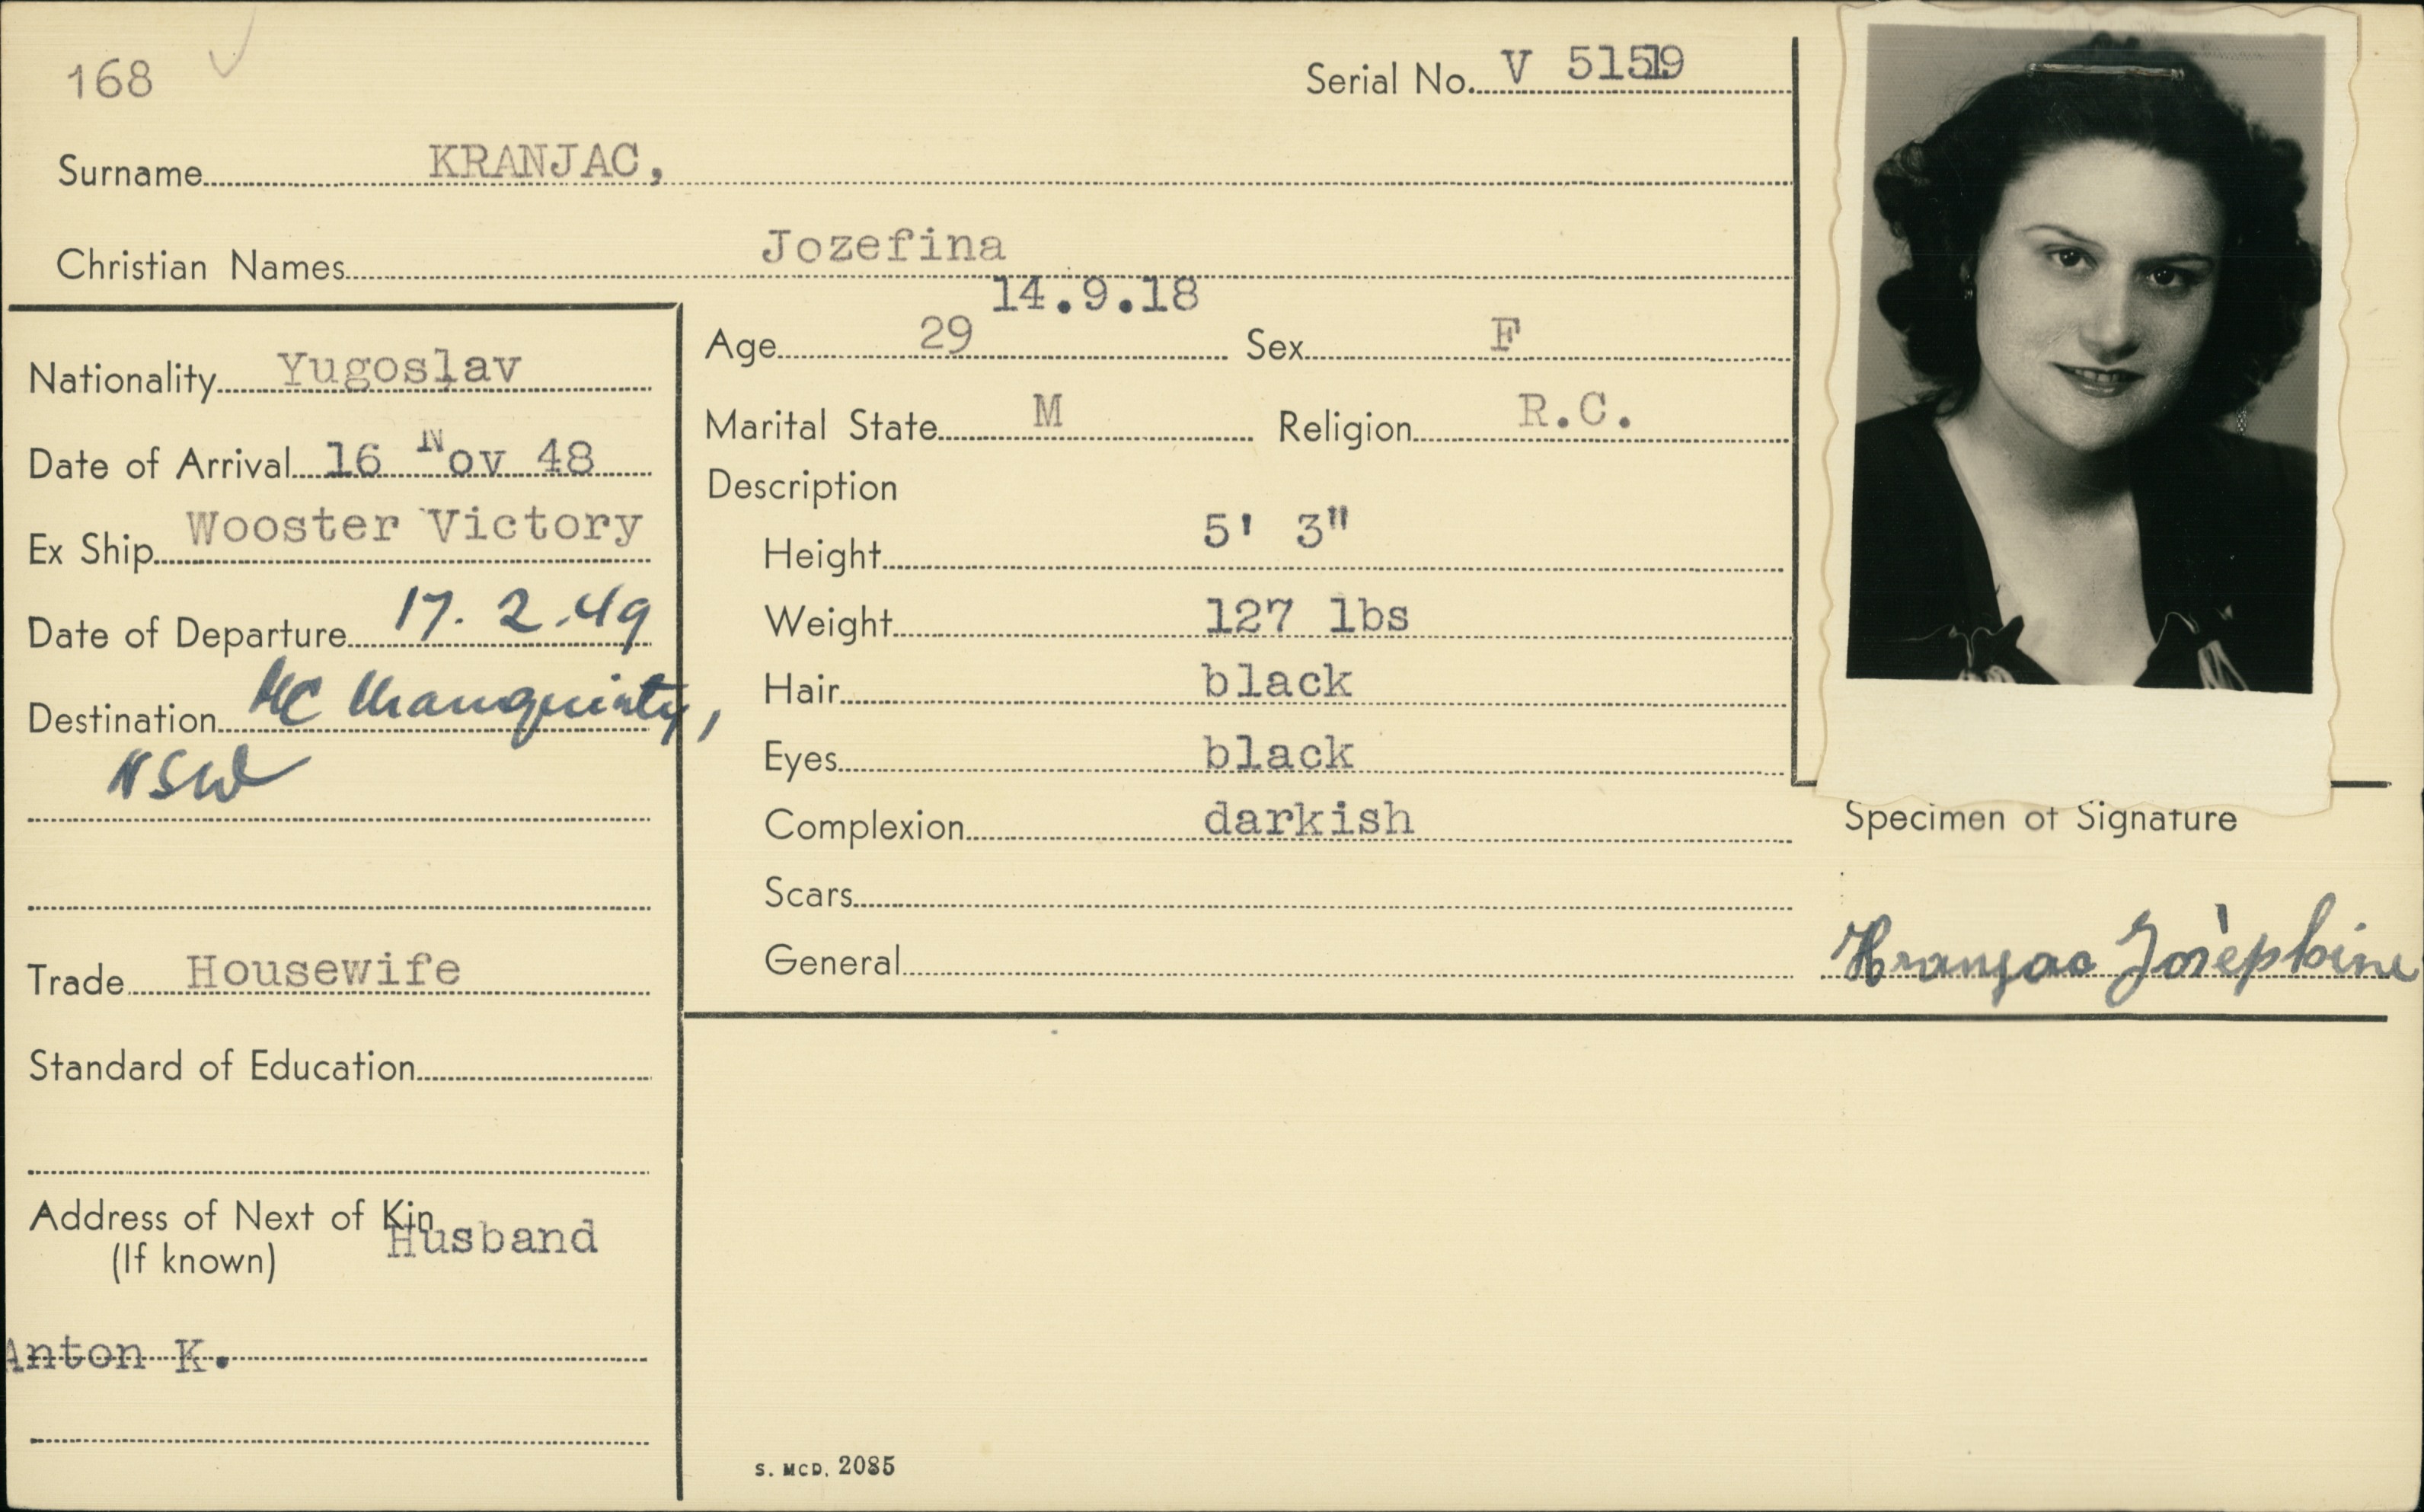 168
Serial No. V 5159
Surname KRANJAC,
Christian Names Jozefina
14.9.18
Nationality Yugoslav
Date of Arrival 16 Nov 48
Ex Ship Wooster Victory
Date of Departure 17.2.49
Destination
NSW
Trade Housewife
Standard of Education
Address of Next of Kin
(If known) Husband
Anton K.
Age 29 Sex F
Marital State M Religion R.C.
Description
Height 5' 3"
Weight 127 lbs
Hair black
Eyes black
Complexion darkish
Scars
General
Specimen of Signature
Kranjac Josèphine
S. McD. 2085